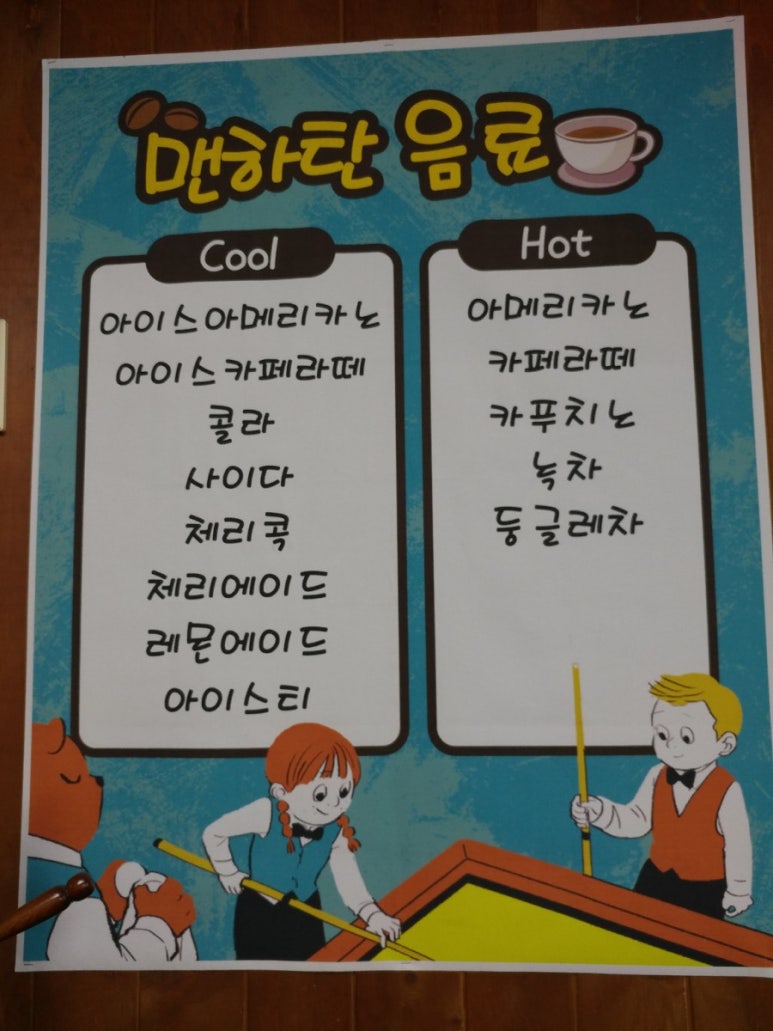 맨하탄 음료
Cool
아이스아메리카노
아이스카페라떼
콜라
사이다
체리콕
체리에이드
레몬에이드
아이스티
Hot
아메리카노
카페라떼
카푸치노
녹차
둥글레차